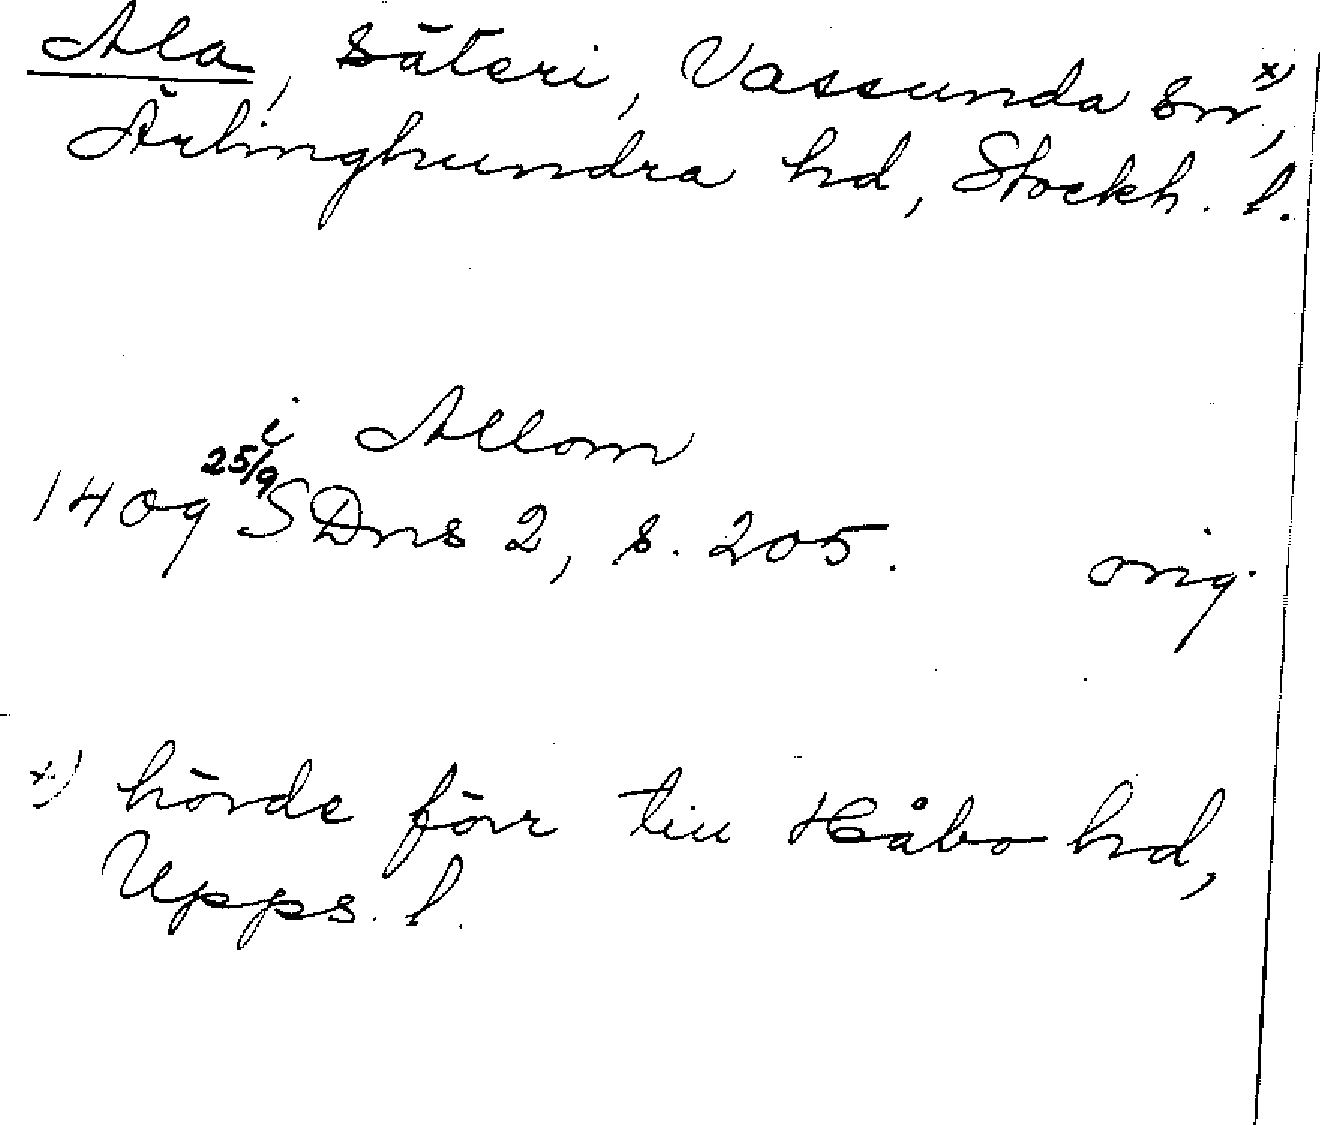 Ala, säteri, Vassunda sn, x)
Ärlinghundra hd, Stockh. l.
i Allom
1409 25/9 SDns 2, s. 205. orig.
x) hörde förr till Håbo hd,
Upps. l.